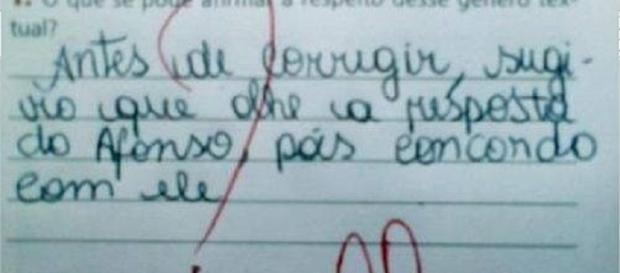 O que se pode afirmar a respeito desse gênero tex-
tual?
Antes de corrigir, sugi-
ro que olhe a resposta
do Afonso, pois concordo
com ele